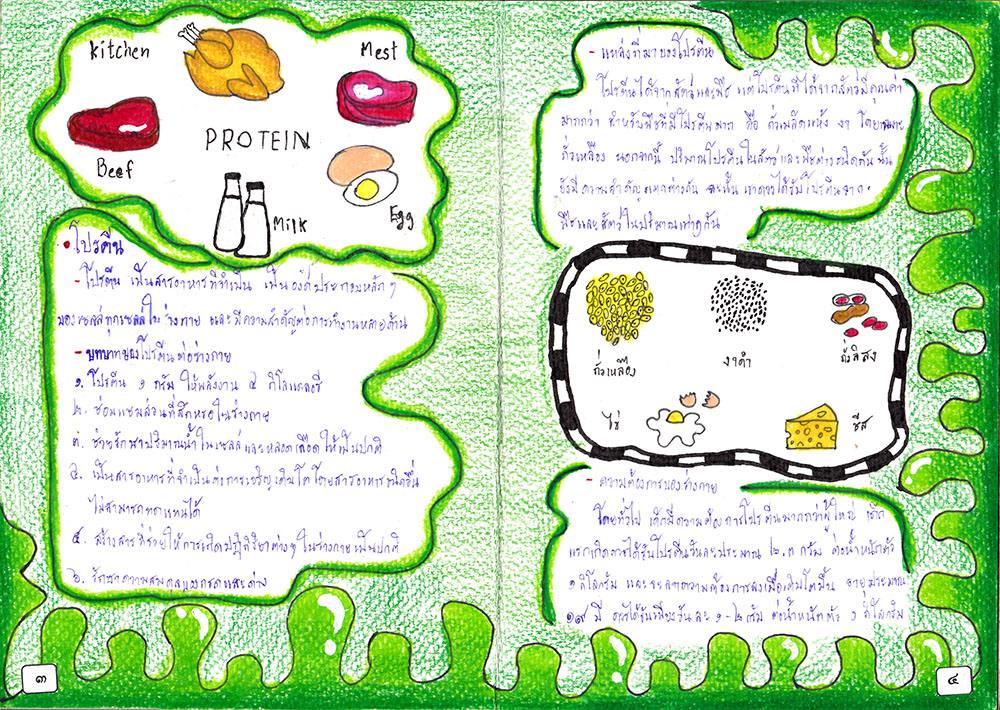 Kitchen
Mest
Beef
PROTEIN
Milk
Egg
• โปรตีน
- โปรตีน เป็นสารอาหารที่จำเป็น เป็นองค์ประกอบหลัก ๆ
ของเซลล์ทุกเซลล์ในร่างกาย และมีความสำคัญต่อการทำงานหลายด้าน
- บทบาทของโปรตีนต่อร่างกาย
๑. โปรตีน ๑ กรัม ให้พลังงาน ๔ กิโลแคลอรี
๒. ซ่อมแซมส่วนที่สึกหรอในร่างกาย
๓. ช่วยรักษาปริมาณน้ำในเซลล์และหลอดเลือดให้เป็นปกติ
๔. เป็นสารอาหารที่จำเป็นต่อการเจริญเติบโตโดยสารอาหารชนิดอื่น
ไม่สามารถทดแทนได้
๕. สร้างสารที่ช่วยให้การเกิดปฏิกิริยาต่างๆ ในร่างกายเป็นปกติ
๖. รักษาความสมดุลของกรดและด่าง
๓
- แหล่งที่มาของโปรตีน
โปรตีนได้จากสัตว์และพืช แต่โปรตีนที่ได้จากสัตว์มีคุณค่า
มากกว่า สำหรับพืชที่มีโปรตีนมาก คือ ถั่วเมล็ดแห้ง งา โดยเฉพาะ
ถั่วเหลือง นอกจากนี้ ปริมาณโปรตีนในสัตว์และพืชต่างชนิดกันนั้น
ยังมีความสำคัญแตกต่างกัน ฉะนั้น เราควรได้รับโปรตีนจาก
พืชและสัตว์ในปริมาณเท่าๆกัน
ถั่วเหลือง
งาดำ
ถั่วลิสง
ไข่
ชีส
- ความต้องการของร่างกาย
โดยทั่วไป เด็กมีความต้องการโปรตีนมากกว่าผู้ใหญ่ เด็ก
แรกเกิดควรได้รับโปรตีนวันละประมาณ ๒.๓ กรัม ต่อน้ำหนักตัว
๑ กิโลกรัม และจะลดความต้องการลงเมื่อเติบโตขึ้น อายุประมาณ
๑๙ ปี ควรได้รับเพียงวันละ ๑-๒ กรัม ต่อน้ำหนักตัว ๑ กิโลกรัม
๔